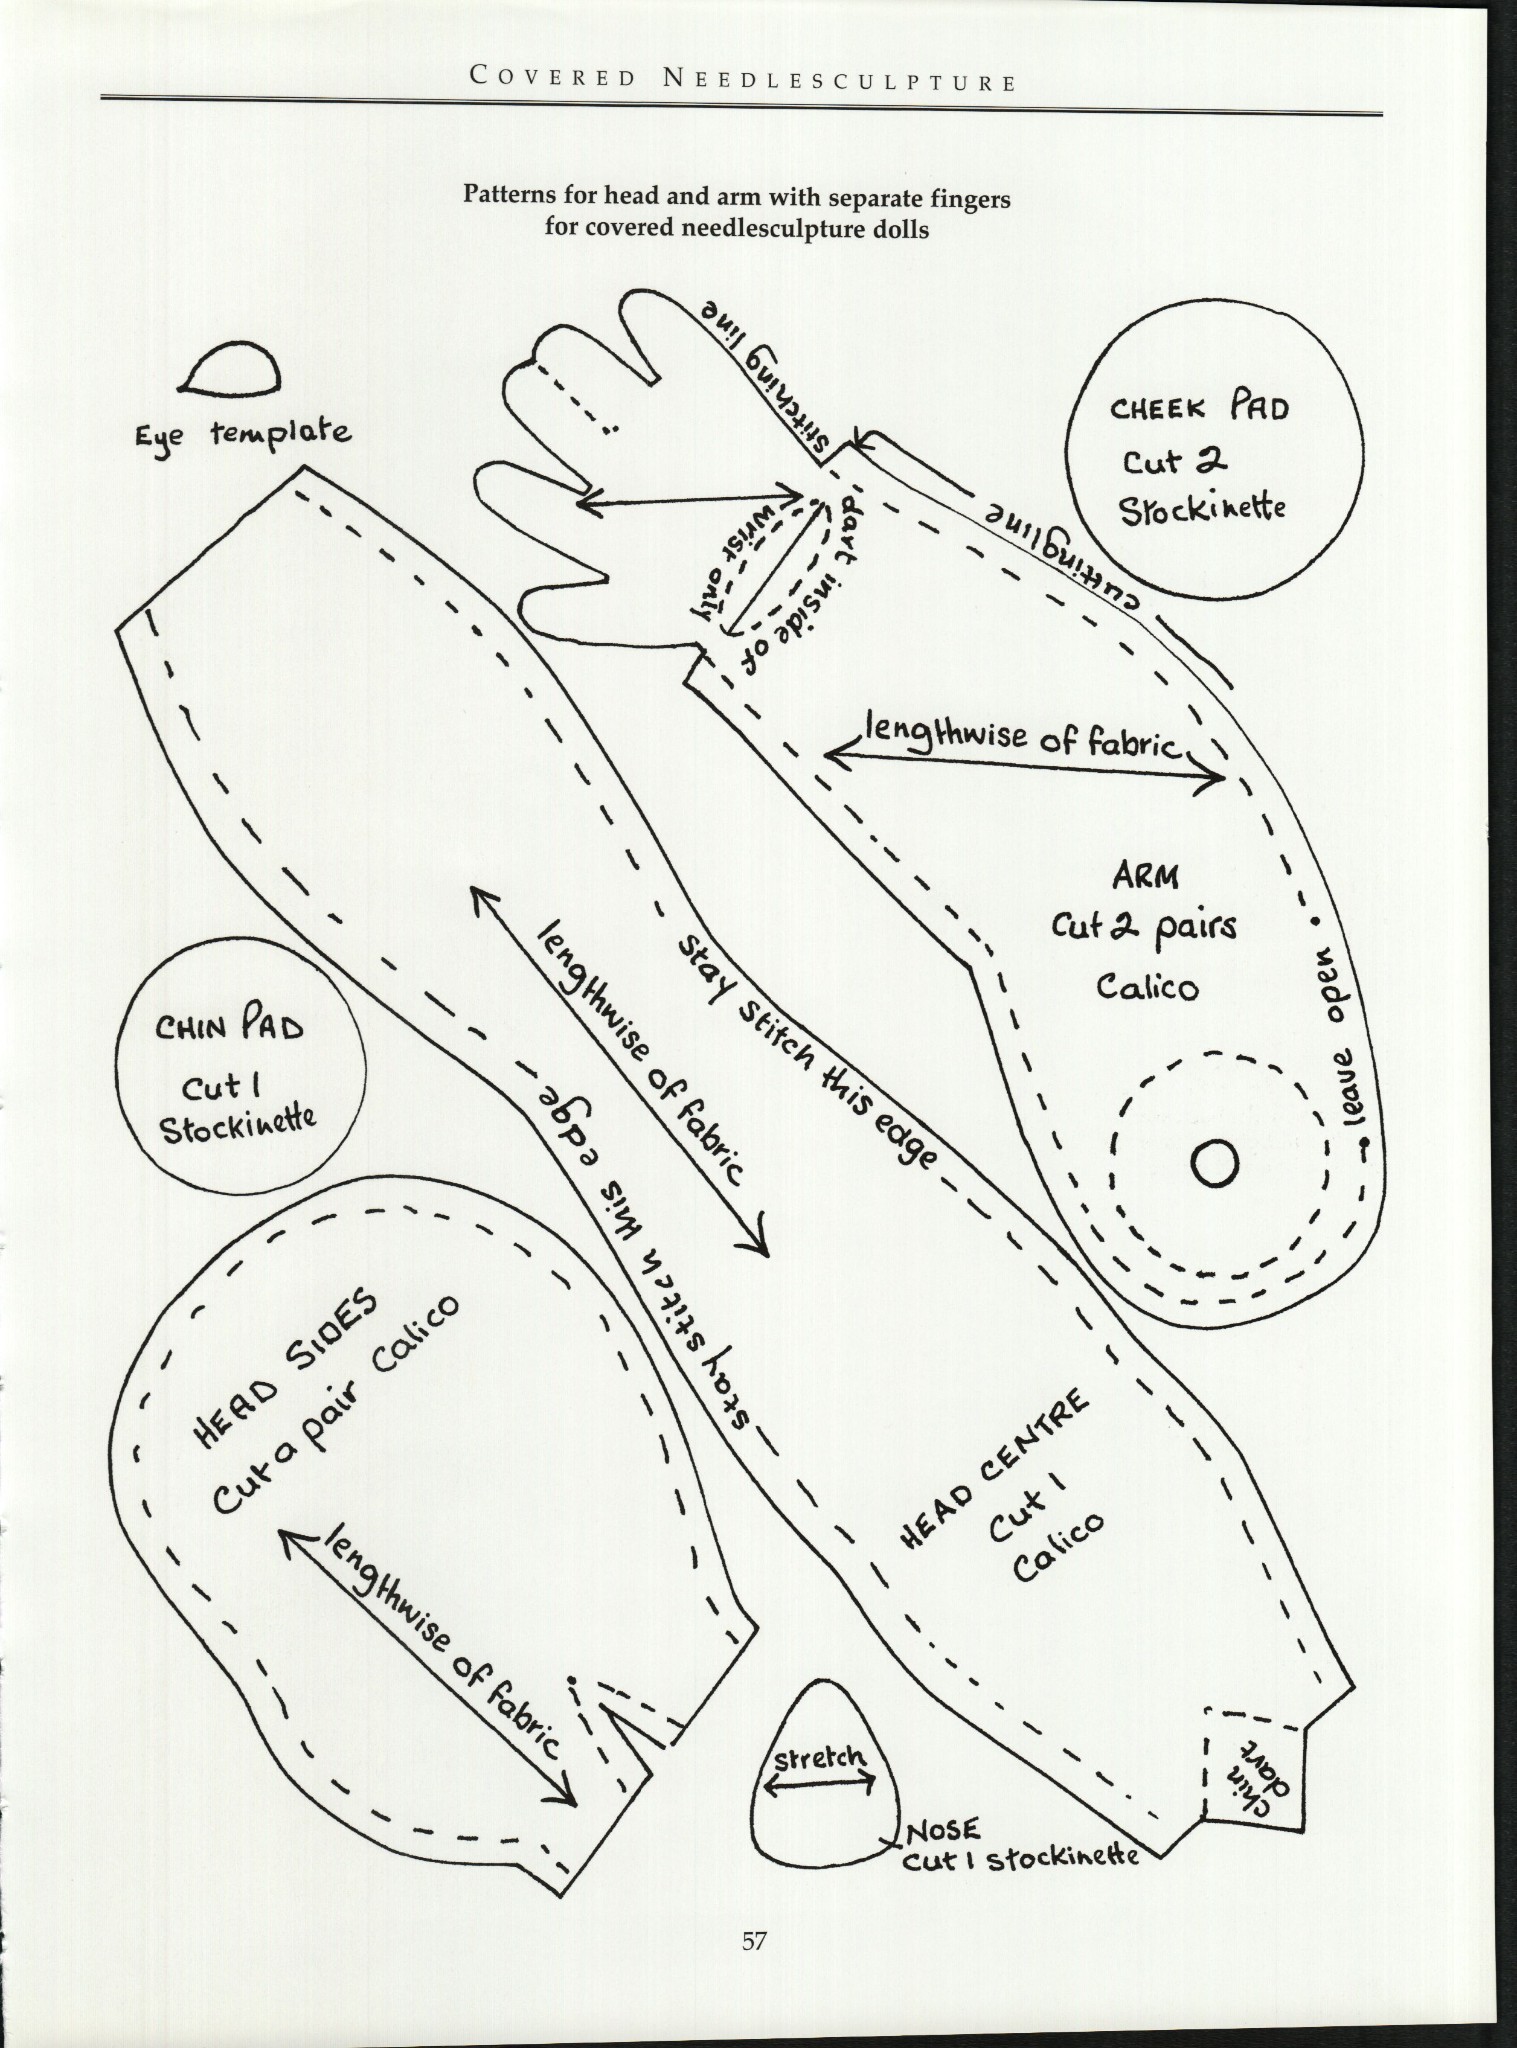 COVERED NEEDLESCULPTURE
Patterns for head and arm with separate fingers
for covered needlesculpture dolls
Eye template
stitching line
CHEEK PAD
Cut 2
Stockinette
cutting line
dart inside of
wrist only
lengthwise of fabric
ARM
Cut 2 pairs
Calico
leave open
CHIN PAD
Cut 1
Stockinette
lengthwise of fabric
Stay stitch this edge
stay stitch this edge
HEAD SIDES
Cut a pair Calico
lengthwise of fabric
HEAD CENTRE
Cut 1
Calico
chin
dart
stretch
NOSE
Cut 1 stockinette
57